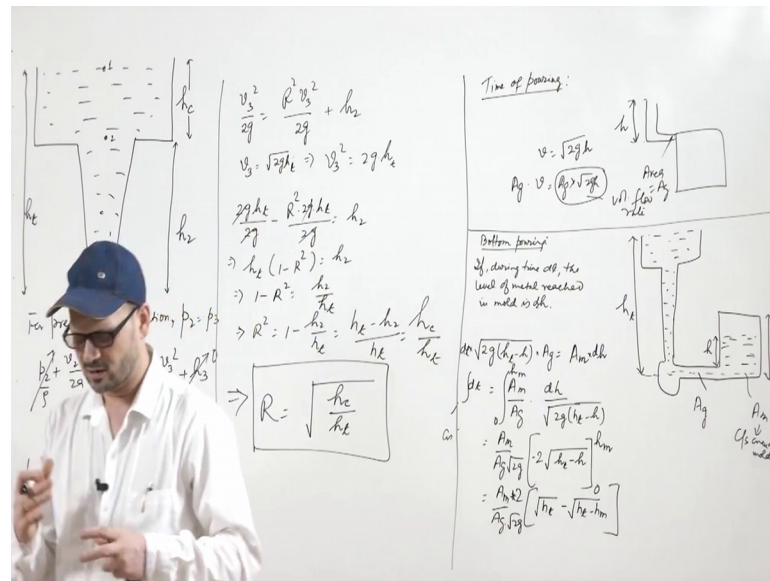 1
2
h_c
h_t
h_2
p_2 = p_3
p_2/ρ + v_2
v_3^2 + h_3 0
v_3^2/2g = R^2 v_3^2/2g + h_2
v_3 = √2gh_t ⇒ v_3^2 = 2gh_t
2gh_t/2g - R^2 2gh_t/2g = h_2
⇒ h_t (1-R^2) = h_2
⇒ 1-R^2 = h_2/h_t
⇒ R^2 = 1 - h_2/h_t = h_t-h_2/h_t = h_c/h_t
⇒ R = √h_c/h_t
Time of pouring:
h
v = √2gh
Ag · v = Ag × √2gh
vol flow rate
Area = Ag
Bottom pouring
If, during time dt, the
level of metal reached
in mold is dh.
h_t
h
dt √2g(h_t-h) × Ag = Am × dh
∫dt = ∫ 0 hm Am/Ag dh/√2g(h_t-h)
= Am/Ag√2g [-2√h_t-h] hm 0
= Am×2/Ag√2g [√h_t - √h_t-hm]
Ag
Am